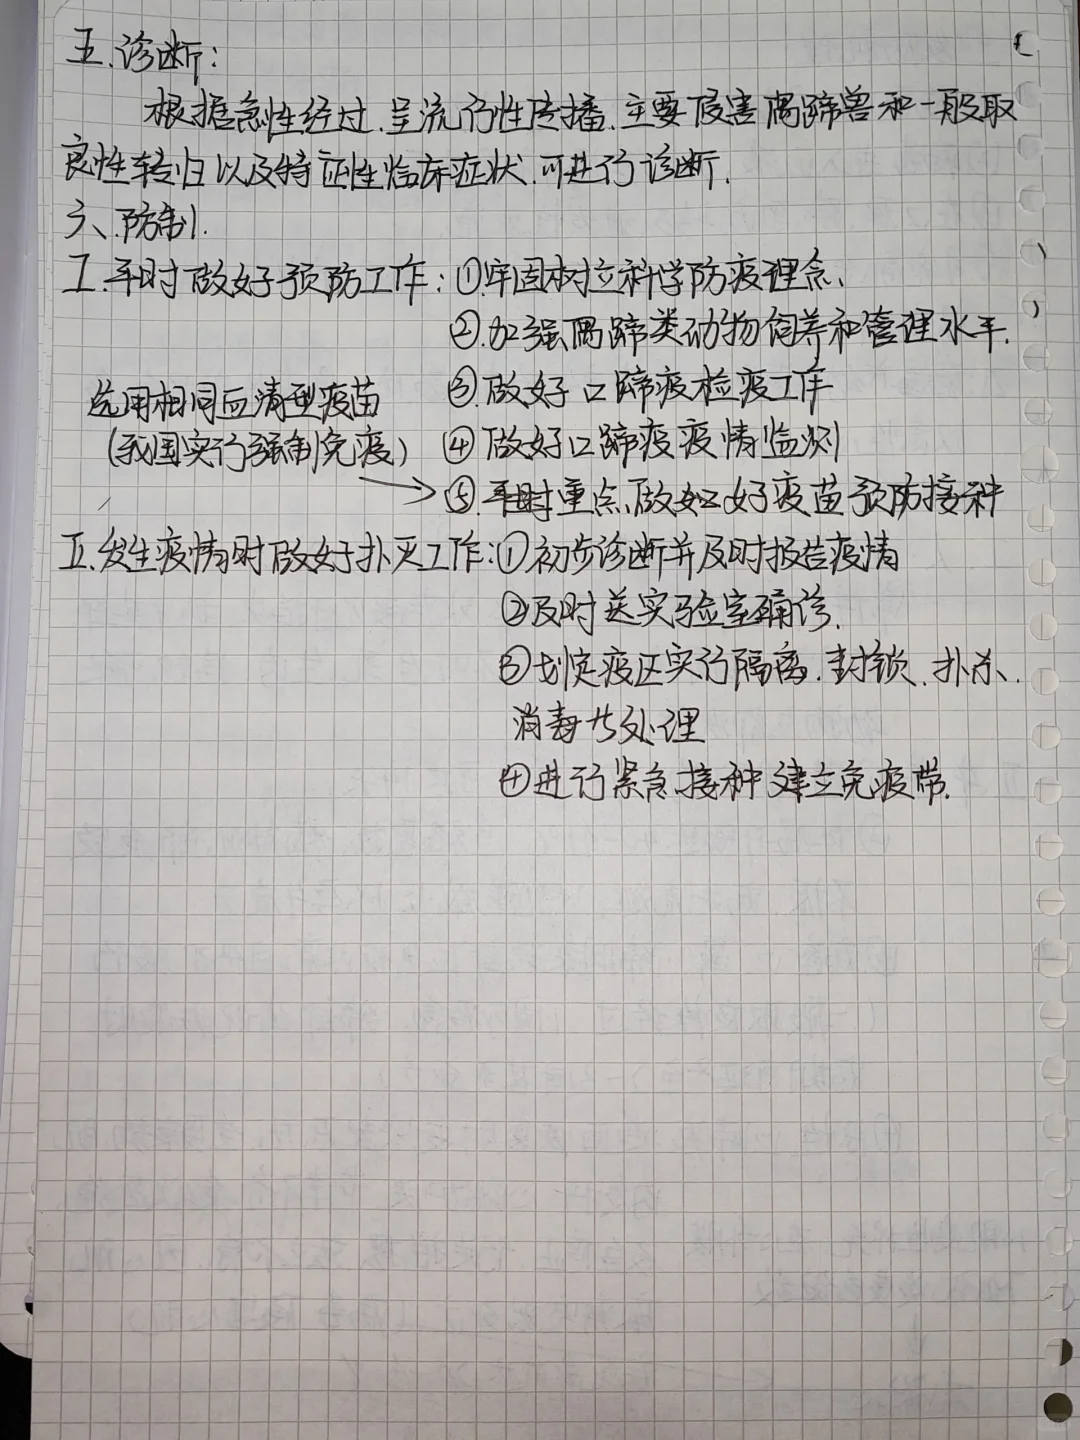 五.诊断:
根据急性经过.呈流行性传播.主要侵害偶蹄兽和一般取
良性转归以及特征性临床症状.可进行诊断.
六、防制.
I.平时做好预防工作:①牢固树立科学防疫理念、
②.加强偶蹄类动物饲养和管理水平.
③.做好口蹄疫检疫工作
选用相同血清型疫苗
(我国实行强制免疫)
④做好口蹄疫疫情监测
⑤.平时重点做好疫苗预防接种
II.发生疫情时做好扑灭工作:①初步诊断并及时报告疫情
②及时送实验室确诊.
③划定疫区实行隔离.封锁.扑杀.
消毒与处理
④进行紧急接种建立免疫带.